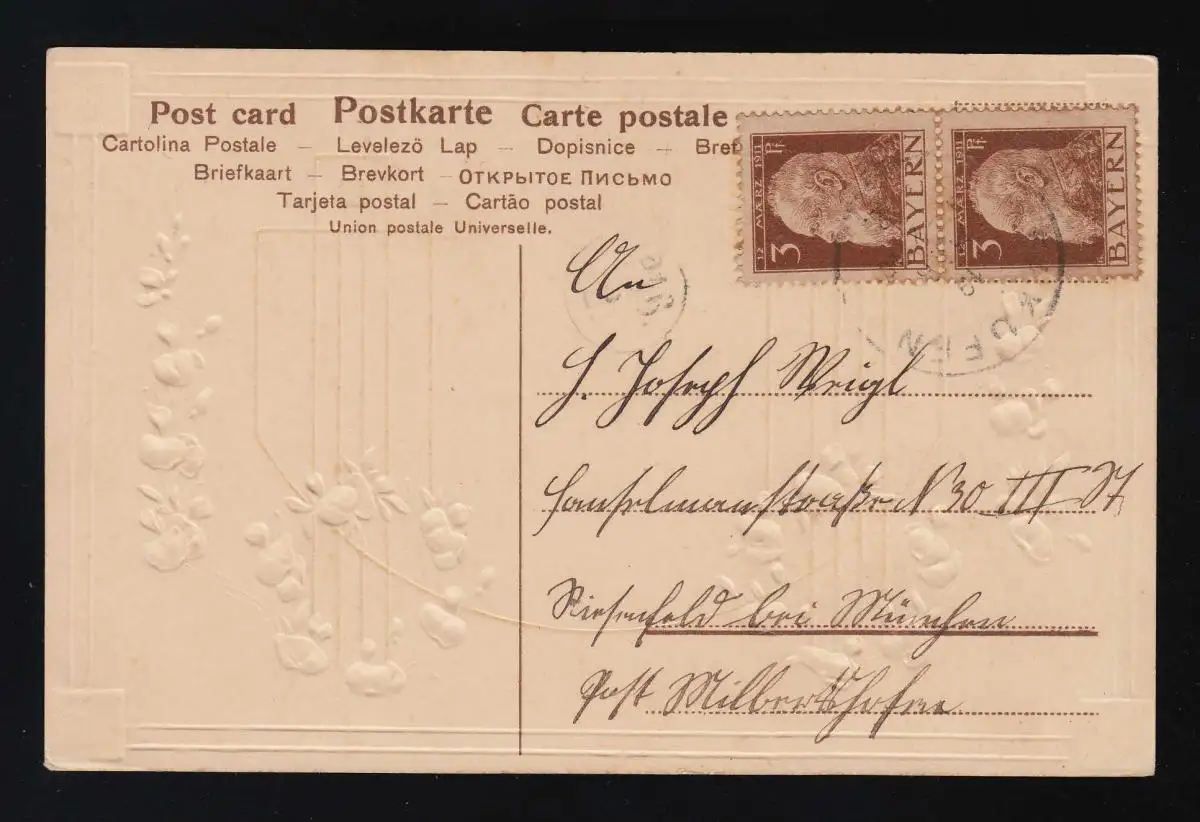 Post card Postkarte Carte postale
Cartolina Postale – Levelezö Lap – Dopisnice – Bref
Briefkaart – Brevkort – ОТКРЫТОЕ ПИСЬМО
Tarjeta postal – Cartão postal
Union postale Universelle.
12 MÄRZ 1911 Pf
3
BAYERN
12 MÄRZ 1911 Pf
3
BAYERN
An
H. Joseph Weigl
straße N 30 III St
Riesenfeld bei München
Post Milbertshofen